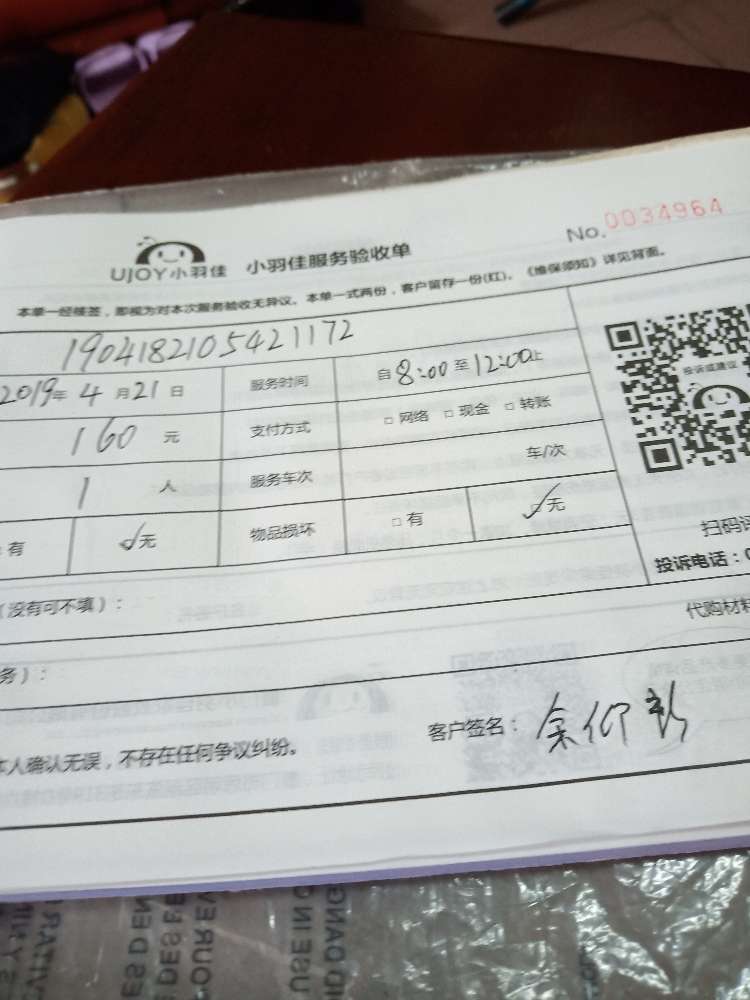 No. 0034964
UJOY小羽佳 小羽佳服务验收单
本单一经核签，即视为对本次服务验收无异议。本单一式两份，客户留存一份(红)。《维保须知》详见背面。
1904182105421172
2019年 4 月 21 日 服务时间 自 8:00 至 12:00止
160 元 支付方式 □ 网络 □ 现金 □ 转账
投诉或建议
1 人 服务车次 车/次
有 无 物品损坏 □ 有 无
扫码
投诉电话：0
（没有可不填）：
代购材料
务）：
本人确认无误，不存在任何争议纠纷。 客户签名：余仰彭